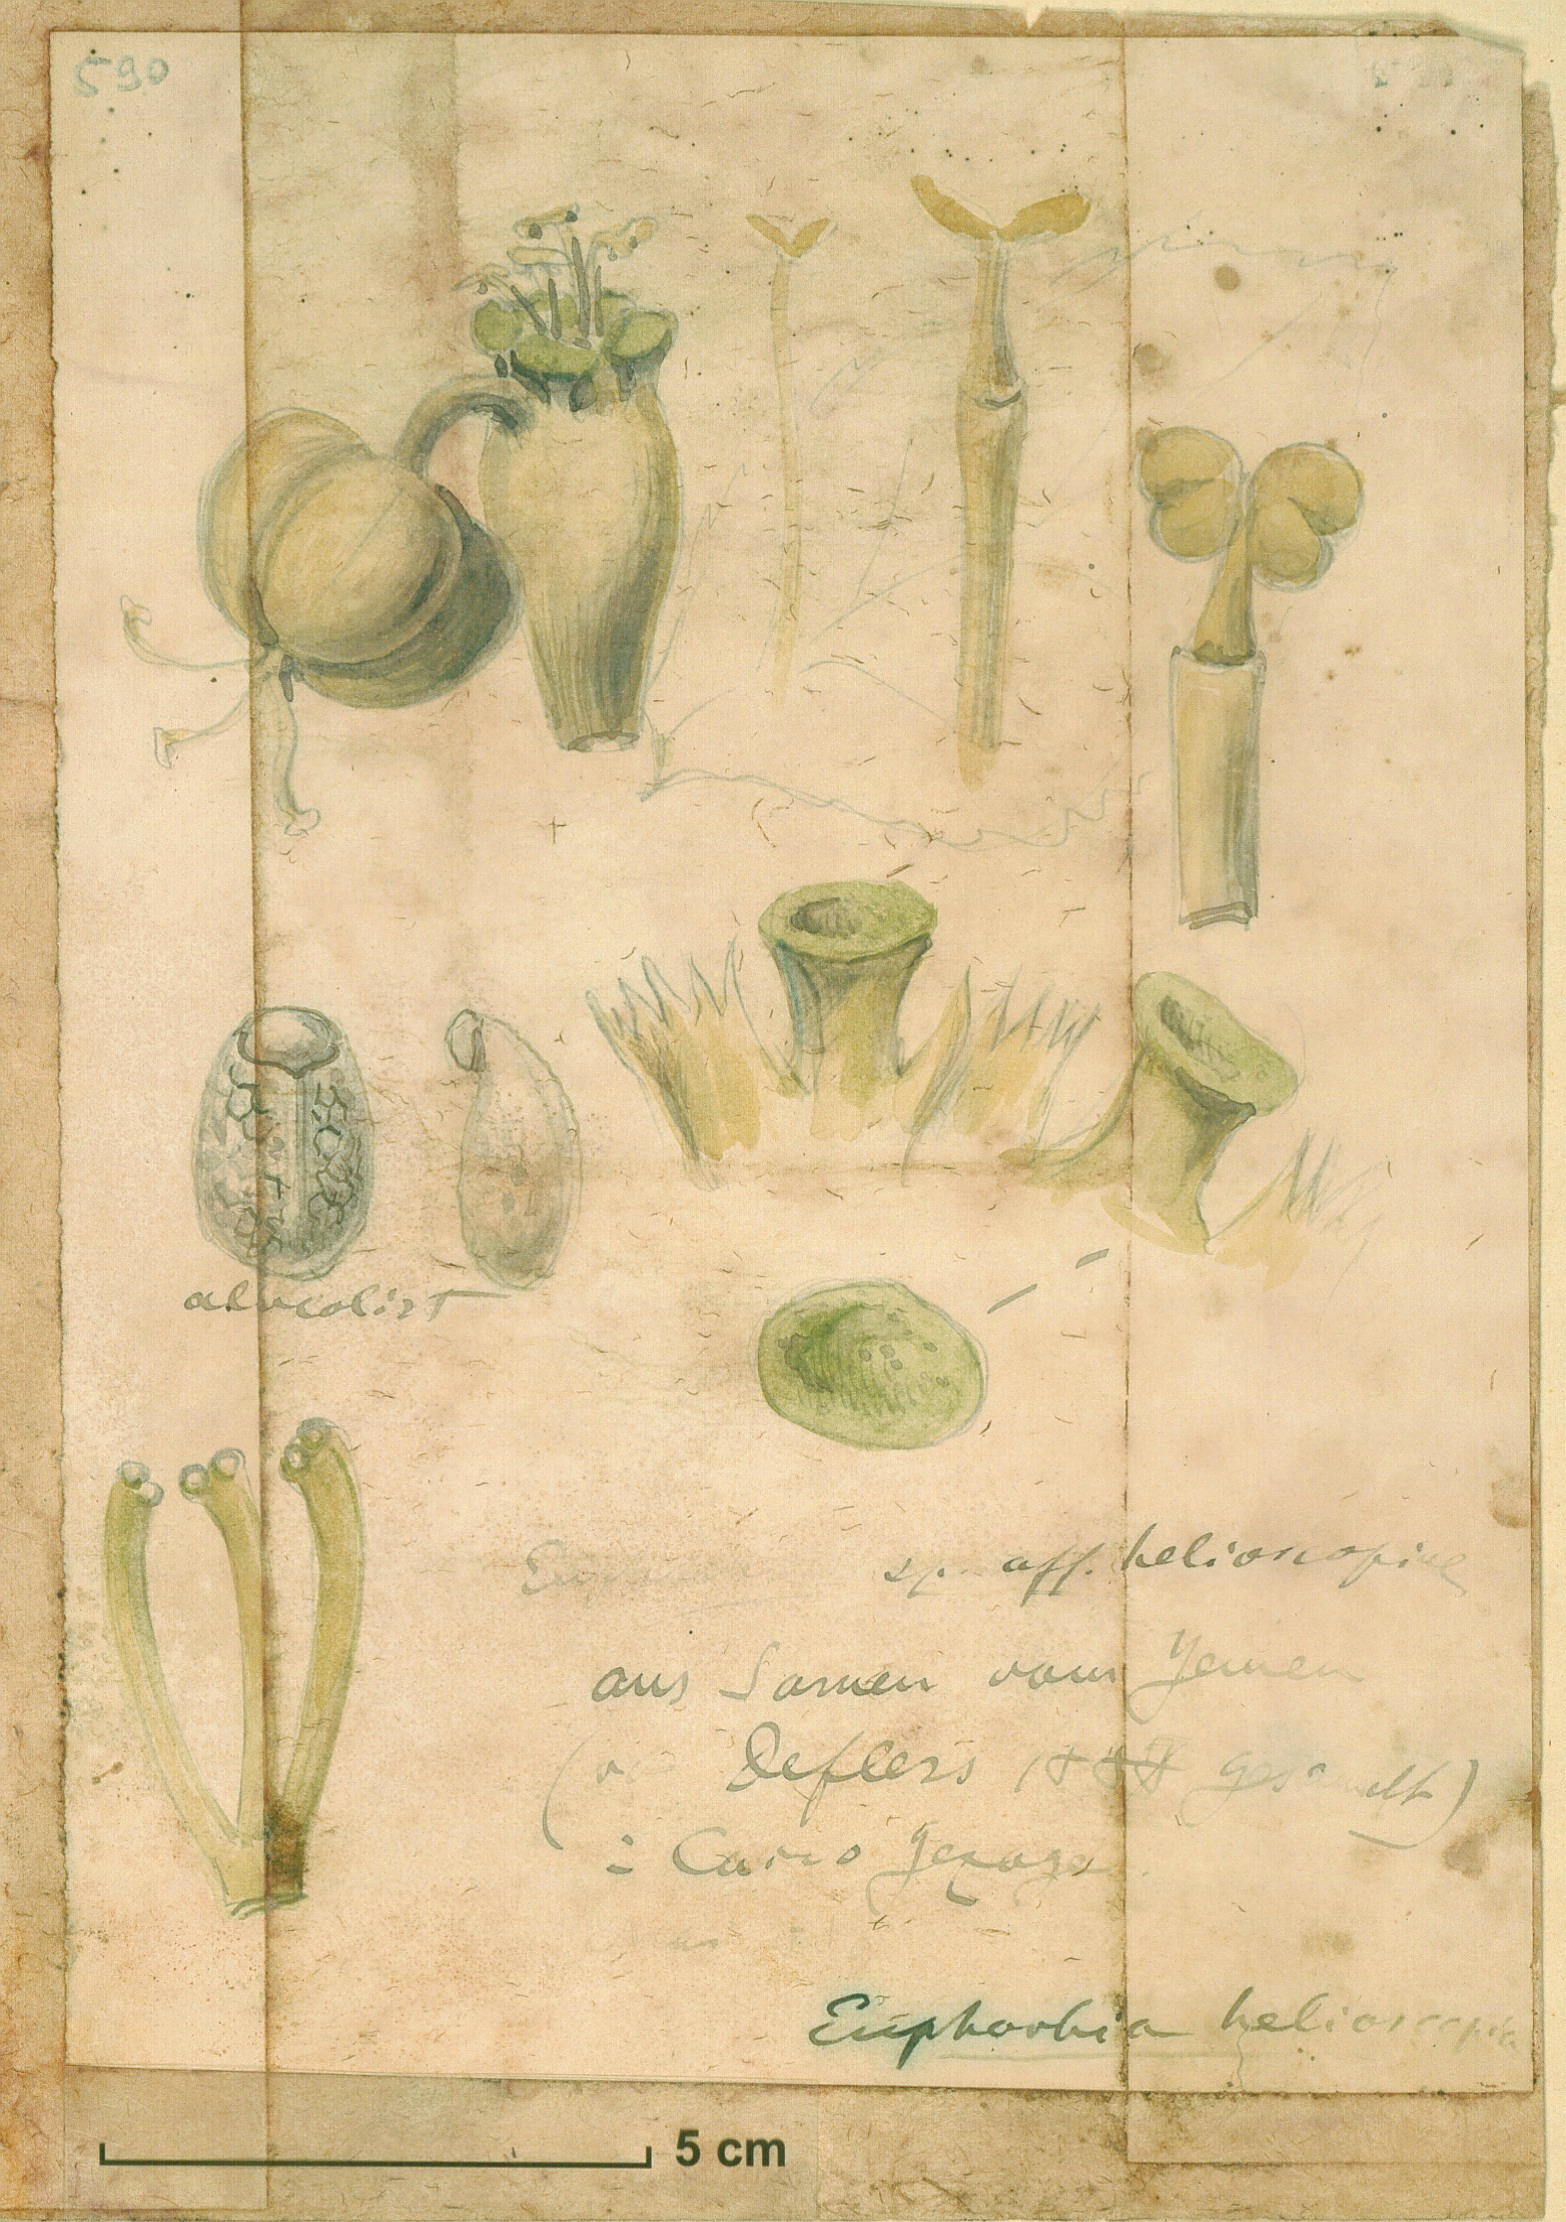 590
alveolirt
sp. aff. helioscopiae
aus Samen vom Yemen
Deflers 1888
Cairo
Euphorbia helioscopia
5 cm